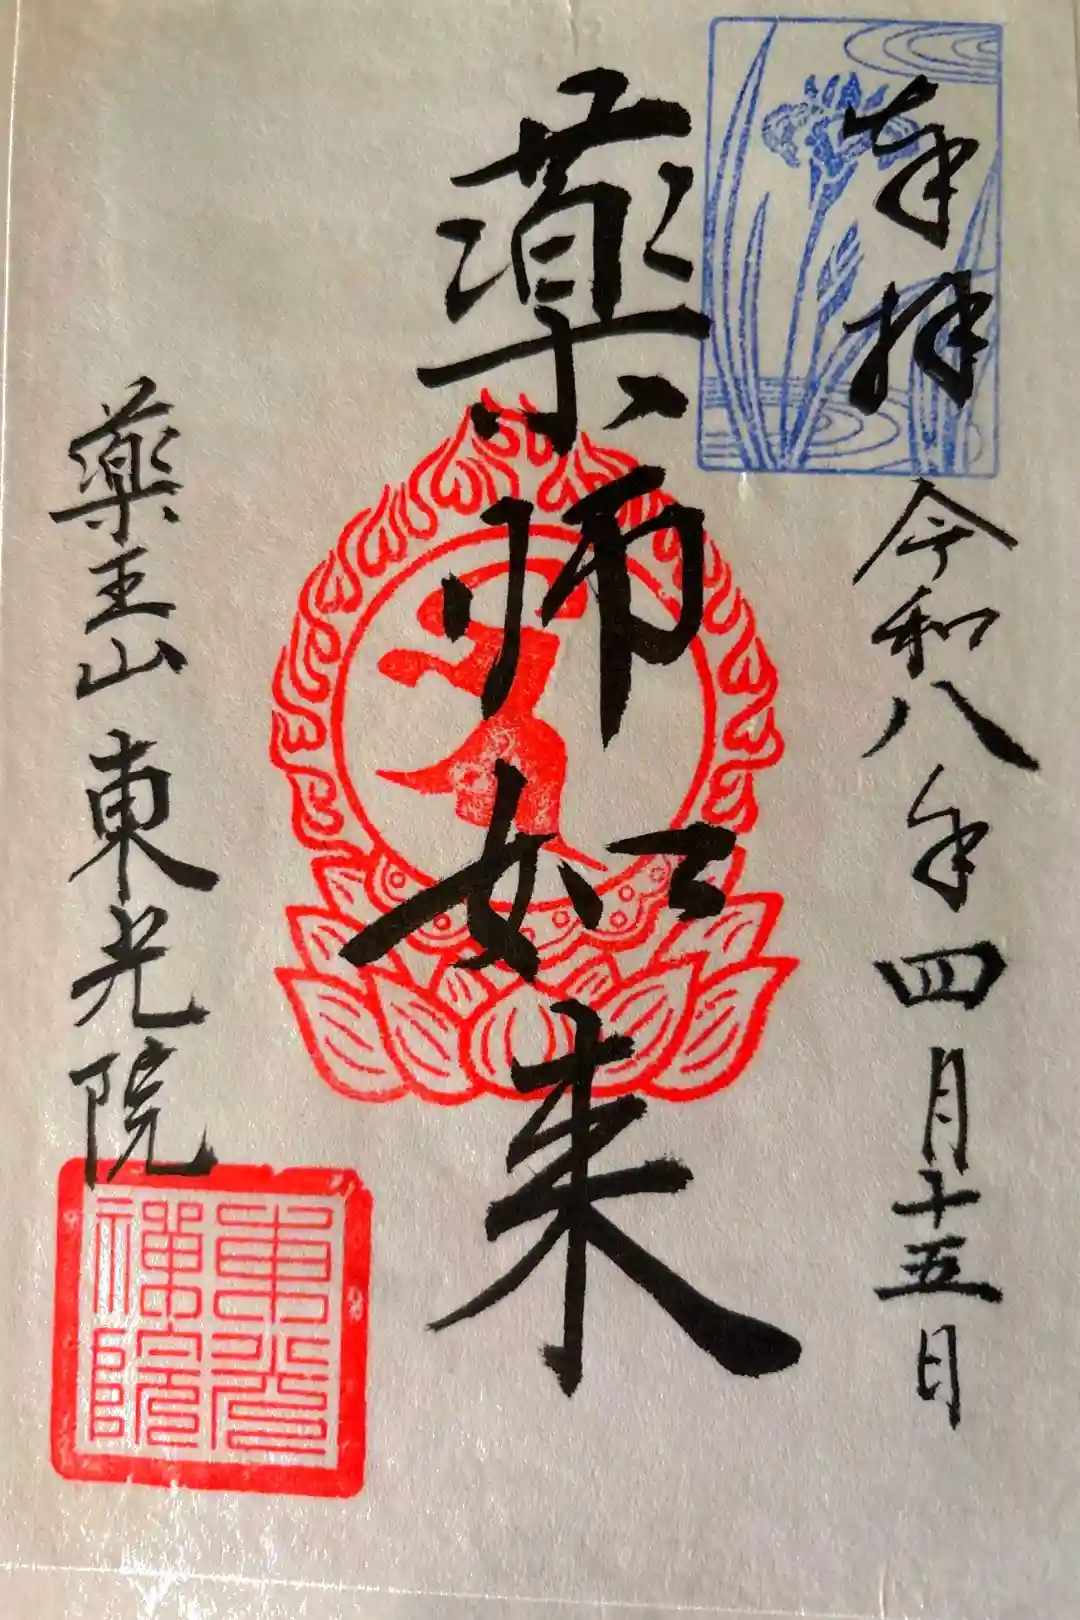 奉拝
令和八年四月十五日
薬師如来
薬王山東光院
東光
禅院